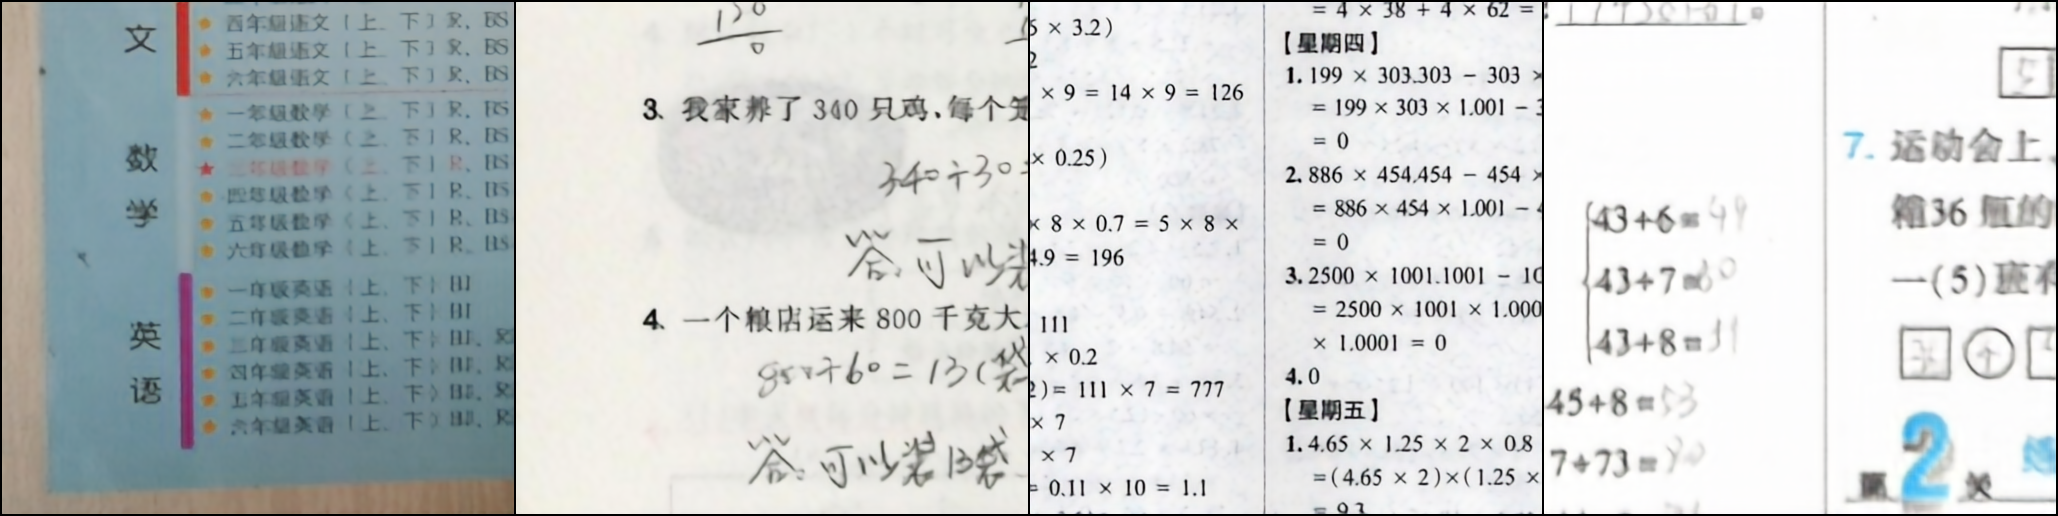 文
数
学
英
语
四年级语文(上、下)R、BS
五年级语文(上、下)R、BS
六年级语文(上、下)R、BS
一年级数学(上、下)R、BS
二年级数学(上、下)R、BS
三年级数学(上、下)R、BS
四年级数学(上、下)R、BS
五年级数学(上、下)R、BS
六年级数学(上、下)R、BS
一年级英语(上、下)HJ
二年级英语(上、下)HJ
三年级英语(上、下)HJ、R
四年级英语(上、下)HJ、R
五年级英语(上、下)HJ、R
六年级英语(上、下)HJ、R
150
0
3. 我家养了 340 只鸡,每个笼
340÷30=
答:可以装
4. 一个粮店运来 800 千克大
850÷60=13(袋
答:可以装13袋
5 × 3.2)
2
× 9 = 14 × 9 = 126
× 0.25)
× 8 × 0.7 = 5 × 8 ×
4.9 = 196
111
× 0.2
2)= 111 × 7 = 777
× 7
× 7
= 0.11 × 10 = 1.1
= 4 × 38 + 4 × 62 =
【星期四】
1. 199 × 303.303 − 303 ×
= 199 × 303 × 1.001 − 3
= 0
2. 886 × 454.454 − 454 ×
= 886 × 454 × 1.001 − 4
= 0
3. 2500 × 1001.1001 − 10
= 2500 × 1001 × 1.000
× 1.0001 = 0
4. 0
【星期五】
1. 4.65 × 1.25 × 2 × 0.8
=(4.65 × 2)×(1.25 ×
= 9.3
43+6=49
43+7=50
43+8=51
45+8=53
7+73=80
5
7. 运动会上、
箱36 瓶的
一(5)班不
第2关